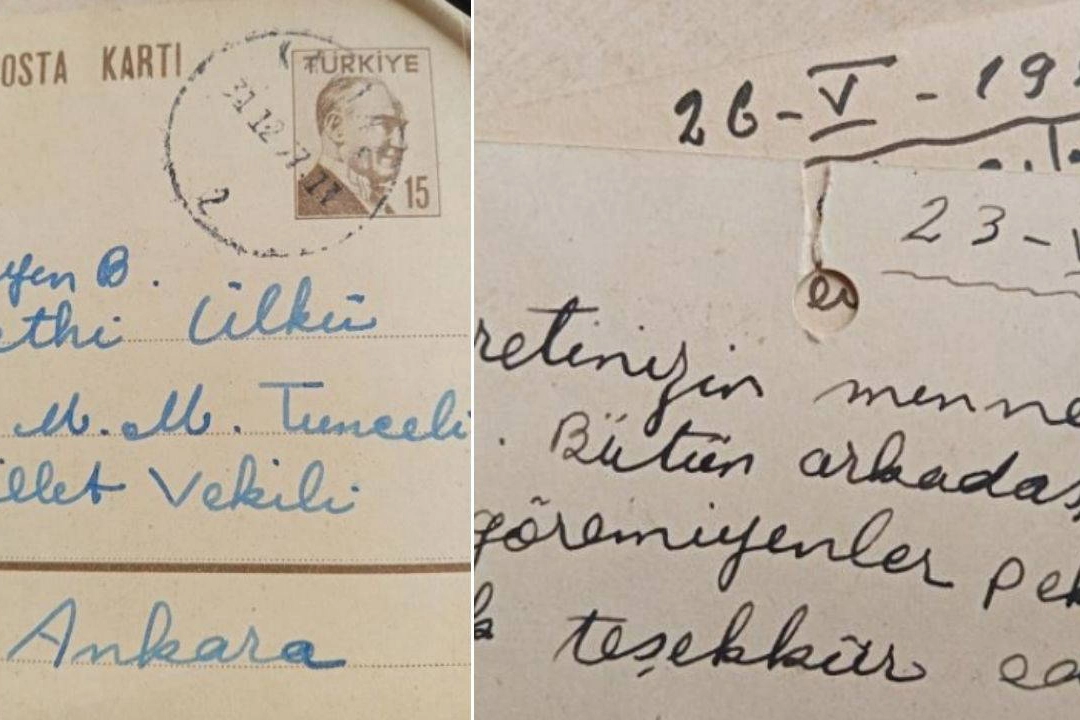 OSTA KARTI
TÜRKİYE
15
31.12
2
B.
ethi Ülkü
M. M. Tunceli
illet Vekili
Ankara
26-V-19
23-
retinizin menne
. Bütün arkadaş
göremiyenler pek
k teşekkür ed